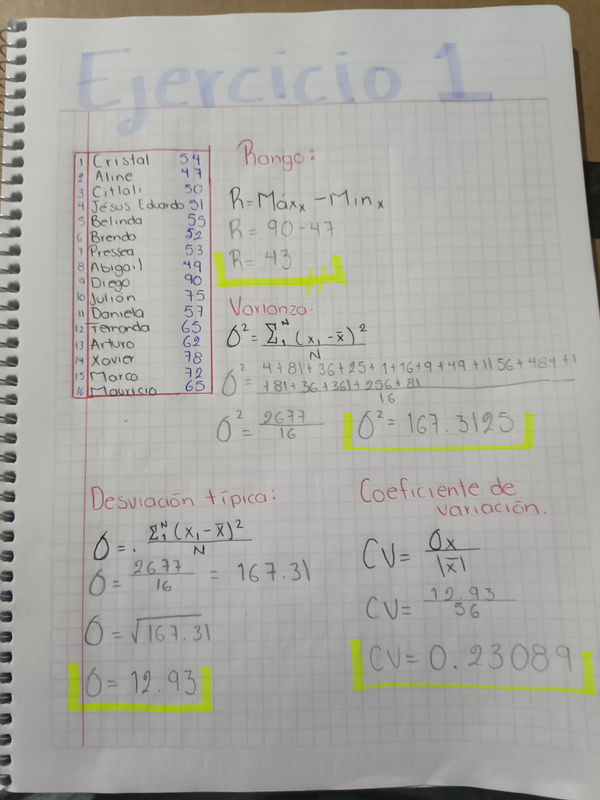 Ejercicio 1
1 Cristal 54
2 Aline 47
3 Citlali 50
4 Jesus Eduardo 51
5 Belinda 55
6 Brenda 52
7 Pressea 53
8 Abigail 49
9 Diego 90
10 Julián 75
11 Daniela 57
12 Fernanda 65
13 Arturo 62
14 Xavier 78
15 Marco 72
16 Mauricio 65
Rango:
R=Máxₓ-Minₓ
R= 90-47
R= 43
Varianza:
σ²= Σ₁ᴺ (x₁-x̄)²
N
σ²= 4+81+36+25+1+16+9+49+1156+484+1
+81+36+361+256+81
16
σ²= 2677
16
σ²= 167.3125
Desviación típica:
σ= Σ₁ᴺ (x₁-x̄)²
N
σ= 2677 = 167.31
16
σ=√167.31
σ= 12.93
Coeficiente de
variación.
CV= σx
|x̄|
CV= 12.93
56
CV= 0.23089